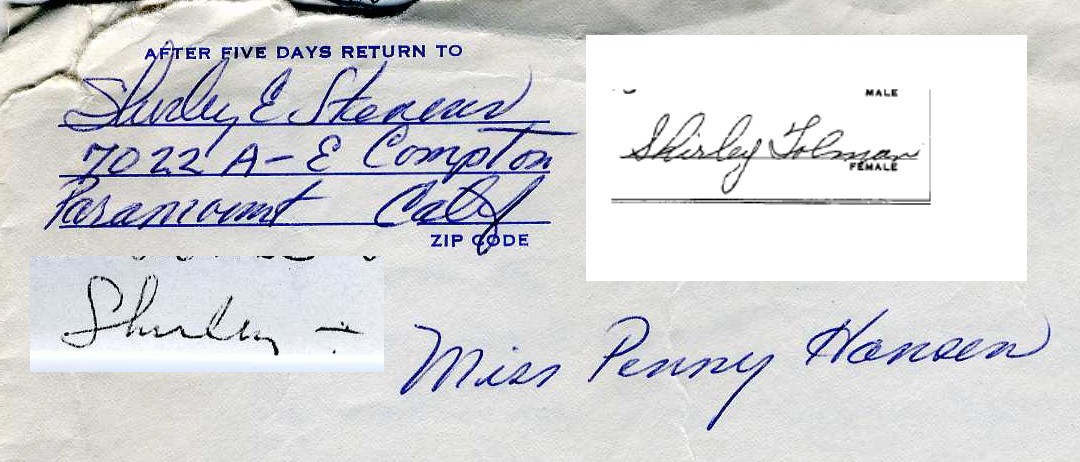 AFTER FIVE DAYS RETURN TO
Shirley E Stevens
7022 A-E Compton
Paramount Calif
ZIP CODE
MALE
Shirley Tolman
FEMALE
Shirley
Miss Penny Hansen